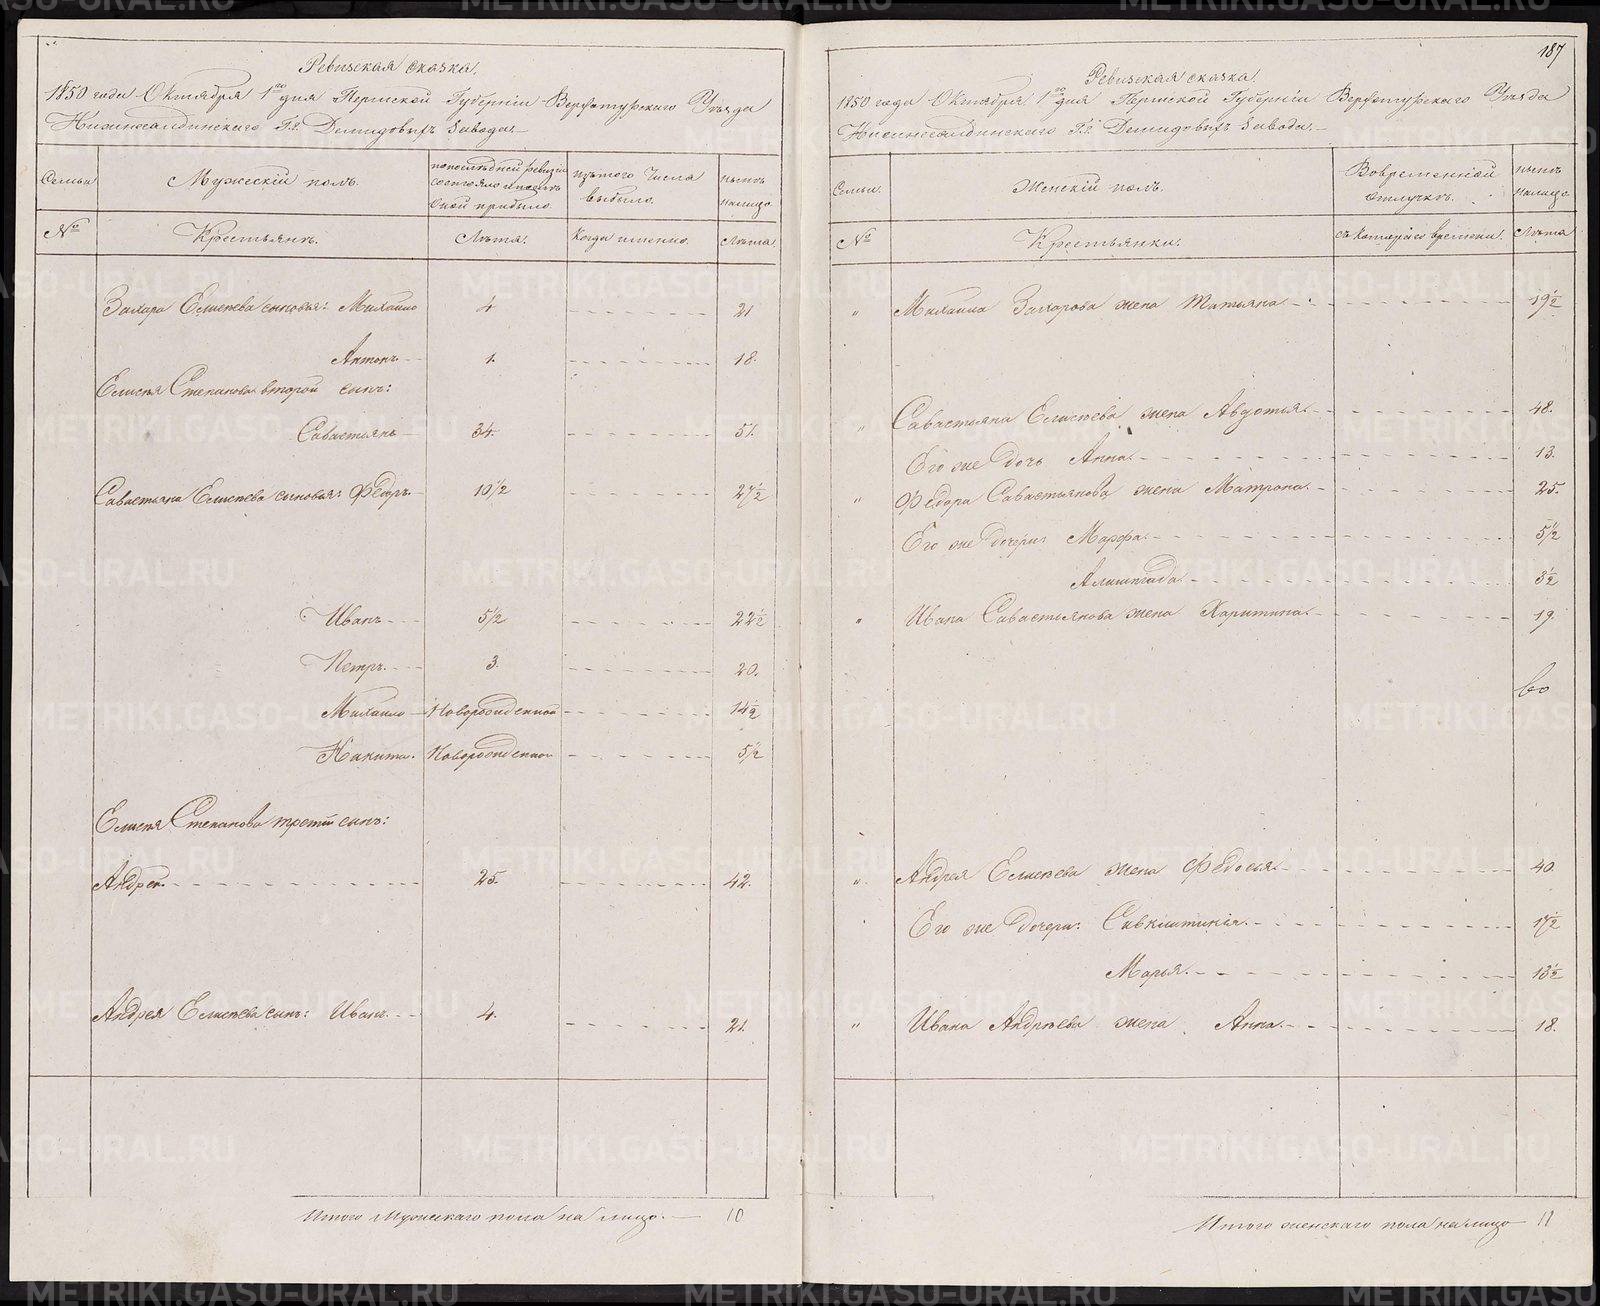 Ревизская сказка.
1850 года Октября 1го дня Пермской Губерніи Верхотурскаго Уѣзда
Нижнесалдинскаго Г.г. Демидовыхъ завода.
Семьи
Мужескій полъ.
по последней ревизіи
состояло и после
оной прибыло.
изъ того числа
выбыло.
нынѣ
налицо
№
Крестьянъ.
Лѣта.
Когда именно.
Лѣта.
Захара Елисѣева сыновья: Михайло 4 21
Антонъ 1. 18.
Елисѣя Степанова второй сынъ:
Савастьянъ 34. 51.
Савастьяна Елисѣева сыновья: Федоръ. 10 1/2 27 1/2
Иванъ 5 1/2 22 1/2
Петръ. 3. 20.
Михайло Новорожденной 14 1/2
Никита. Новорожденной 5 1/2
Елисѣя Степанова третій сынъ:
Андрей. 25. 42.
Андрея Елисѣева сынъ: Иванъ. 4. 21.
Итого мужескаго пола на лицо. 10
187
Ревизская сказка.
1850 года Октября 1го дня Пермской Губерніи Верхотурскаго Уѣзда
Нижнесалдинскаго Г.г. Демидовыхъ завода.
Семьи.
Женскій полъ.
Вовременной
отлучкѣ.
нынѣ
налицо
№
Крестьянки.
съ котораго времени.
Лѣта
" Михаила Захарова жена Татьяна 19 1/2
" Савастьяна Елисѣева жена Авдотья. 48.
Его же дочь Анна. 13.
" Федора Савастьянова жена Матрона. 25.
Его же дочери: Марфа. 5 1/2
3 1/2
" Ивана Савастьянова жена Харитина. 19.
" Андрея Елисѣева жена Федосья. 40.
Его же дочери: 17 1/2
Марья. 13 1/2
" Ивана Андрѣева жена Анна. 18.
Итого женскаго пола на лицо 11
METRIKI.GASO-URAL.RU